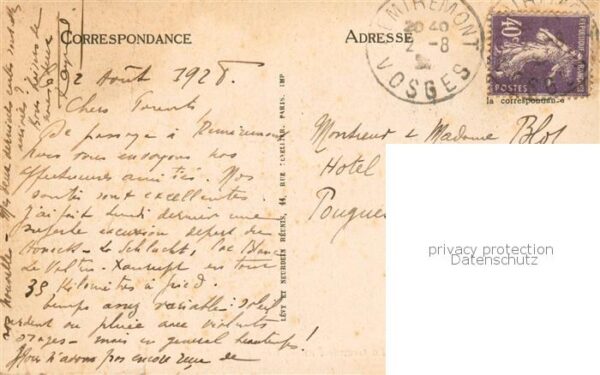 CORRESPONDANCE
ADRESSE
2 Août 1928.
Chers Parents
De passage à Remiremont
nous vous envoyons nos
affectueuses amitiés. Nos
santés sont excellentes.
J'ai fait lundi dernier une
superbe excursion départ du
Honeck - Le Schlucht, Lac Blanc
Le Valtin - Xonrupt en tout
35 Kilomètres à pied.
Temps assez variable: soleil
ardent ou pluie avec violents
orages - mais en général beau temps!
Nous n'avons pas encore reçu de
vos nouvelles -
Bons baisers de
REMIREMONT
20 40
2 -8
VOSGES
40c
REPUBLIQUE FRANÇAISE
POSTES
la correspondance
LÉVY ET NEURDEIN RÉUNIS, 44, RUE LETELLIER, PARIS. IMP
Monsieur & Madame
Hotel
Pougues
privacy protection
Datenschutz